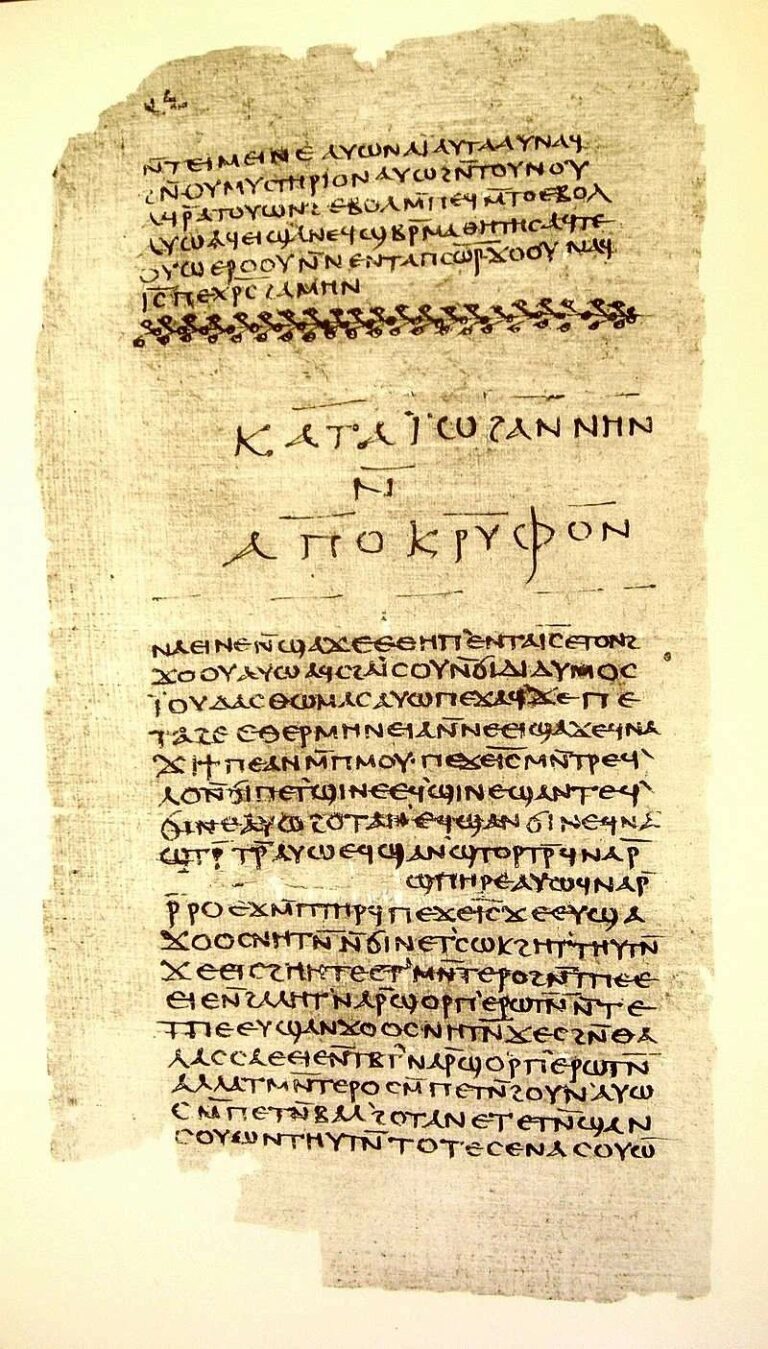 ⲛ̄ⲧⲉⲓⲙⲉⲓⲛⲉ ⲁⲩⲱ ⲛⲁⲓ̈ ⲁⲩⲧⲁⲁⲩ ⲛⲁϥ
ϩⲛ̄ ⲟⲩⲙⲩⲥⲧⲏⲣⲓⲟⲛ ⲁⲩⲱ ϩⲛ̄ ⲧⲟⲩⲛⲟⲩ
ⲁϥⲣ̄ⲁⲧⲟⲩⲱⲛϩ ⲉⲃⲟⲗ ⲙ̄ⲡⲉϥⲙ̄ⲧⲟ ⲉⲃⲟⲗ
ⲁⲩⲱ ⲁϥⲉⲓ ϣⲁ ⲛⲉϥϣⲃⲣ̄ⲙⲁⲑⲏⲧⲏⲥ ⲁϥⲧⲉ
ⲟⲩⲱ ⲉⲣⲟⲟⲩ ⲛ̄ⲛⲉⲛⲧⲁ ⲡⲥⲱ̄ⲣ̄ ϫⲟⲟⲩ ⲛⲁϥ
ⲓⲥ̄ ⲡⲉⲭⲣ̄ⲥ̄ ϩⲁⲙⲏⲛ
ⲕⲁⲧⲁ ⲓ̈ⲱϩⲁⲛⲛⲏⲛ
ⲛ̄
ⲁⲡⲟⲕⲣⲩⲫⲟⲛ
ⲛⲁⲉⲓ ⲛⲉ ⲛ̄ϣⲁϫⲉ ⲉⲑⲏⲡ ⲉⲛⲧⲁ ⲓ̄ⲥ̄ ⲉⲧⲟⲛϩ
ϫⲟⲟⲩ ⲁⲩⲱ ⲁϥⲥϩⲁⲓ̈ⲥⲟⲩ ⲛ̄ϭⲓ ⲇⲓⲇⲩⲙⲟⲥ
ⲓ̈ⲟⲩⲇⲁⲥ ⲑⲱⲙⲁⲥ ⲁⲩⲱ ⲡⲉϫⲁϥ ϫⲉ ⲡⲉ
ⲧⲁϩⲉ ⲉⲑⲉⲣⲙⲏⲛⲉⲓⲁ ⲛ̄ⲛⲉⲉⲓϣⲁϫⲉ ϥⲛⲁ
ϫⲓ ϯⲡⲉ ⲁⲛ ⲙ̄ⲡⲙⲟⲩ ⲡⲉϫⲉ ⲓ̄ⲥ̄ ⲙⲛ̄ⲧⲣⲉϥ
ⲗⲟ ⲛ̄ϭⲓ ⲡⲉⲧϣⲓⲛⲉ ⲉϥϣⲓⲛⲉ ϣⲁⲛⲧⲉϥ
ϭⲓⲛⲉ ⲁⲩⲱ ϩⲟⲧⲁⲛ ⲉϥϣⲁⲛϭⲓⲛⲉ ϥⲛⲁ
ϣⲧⲣ̄ⲧⲣ̄ ⲁⲩⲱ ⲉϥϣⲁⲛϣⲧⲟⲣⲧⲣ̄ ϥⲛⲁⲣ̄
ϣⲡⲏⲣⲉ ⲁⲩⲱ ϥⲛⲁⲣ̄
ⲣ̄ⲣⲟ ⲉϫⲙ̄ ⲡⲧⲏⲣϥ ⲡⲉϫⲉ ⲓ̄ⲥ̄ ϫⲉ ⲉⲩϣⲁ
ϫⲟⲟⲥ ⲛⲏⲧⲛ̄ ⲛ̄ϭⲓ ⲛⲉⲧⲥⲱⲕ ϩⲏⲧ ⲧⲏⲩⲧⲛ̄
ϫⲉ ⲉⲓⲥϩⲏⲏⲧⲉ ⲉⲧⲙⲛ̄ⲧⲉⲣⲟ ϩⲛ̄ ⲧⲡⲉ ⲉ
ⲉⲓⲉ ⲛ̄ϩⲁⲗⲏⲧ ⲛⲁⲣ̄ ϣⲟⲣⲡ ⲉⲣⲱⲧⲛ̄ ⲛ̄ⲧⲉ
ⲧⲡⲉ ⲉⲩϣⲁⲛϫⲟⲟⲥ ⲛⲏⲧⲛ̄ ϫⲉ ⲥϩⲛ̄ ⲑⲁ
ⲗⲁⲥⲥⲁ ⲉⲉⲓⲉ ⲛ̄ⲧⲃⲧ ⲛⲁⲣ̄ ϣⲟⲣⲡ ⲉⲣⲱⲧⲛ̄
ⲁⲗⲗⲁ ⲧⲙⲛ̄ⲧⲉⲣⲟ ⲥⲙ̄ⲡⲉⲧⲛ̄ϩⲟⲩⲛ ⲁⲩⲱ
ⲥⲙ̄ⲡⲉⲧⲛ̄ⲃⲁⲗ ϩⲟⲧⲁⲛ ⲉⲧⲉⲧⲛ̄ϣⲁⲛ
ⲥⲟⲩⲱⲛ ⲧⲏⲩⲧⲛ̄ ⲧⲟⲧⲉ ⲥⲉⲛⲁⲥⲟⲩⲱ